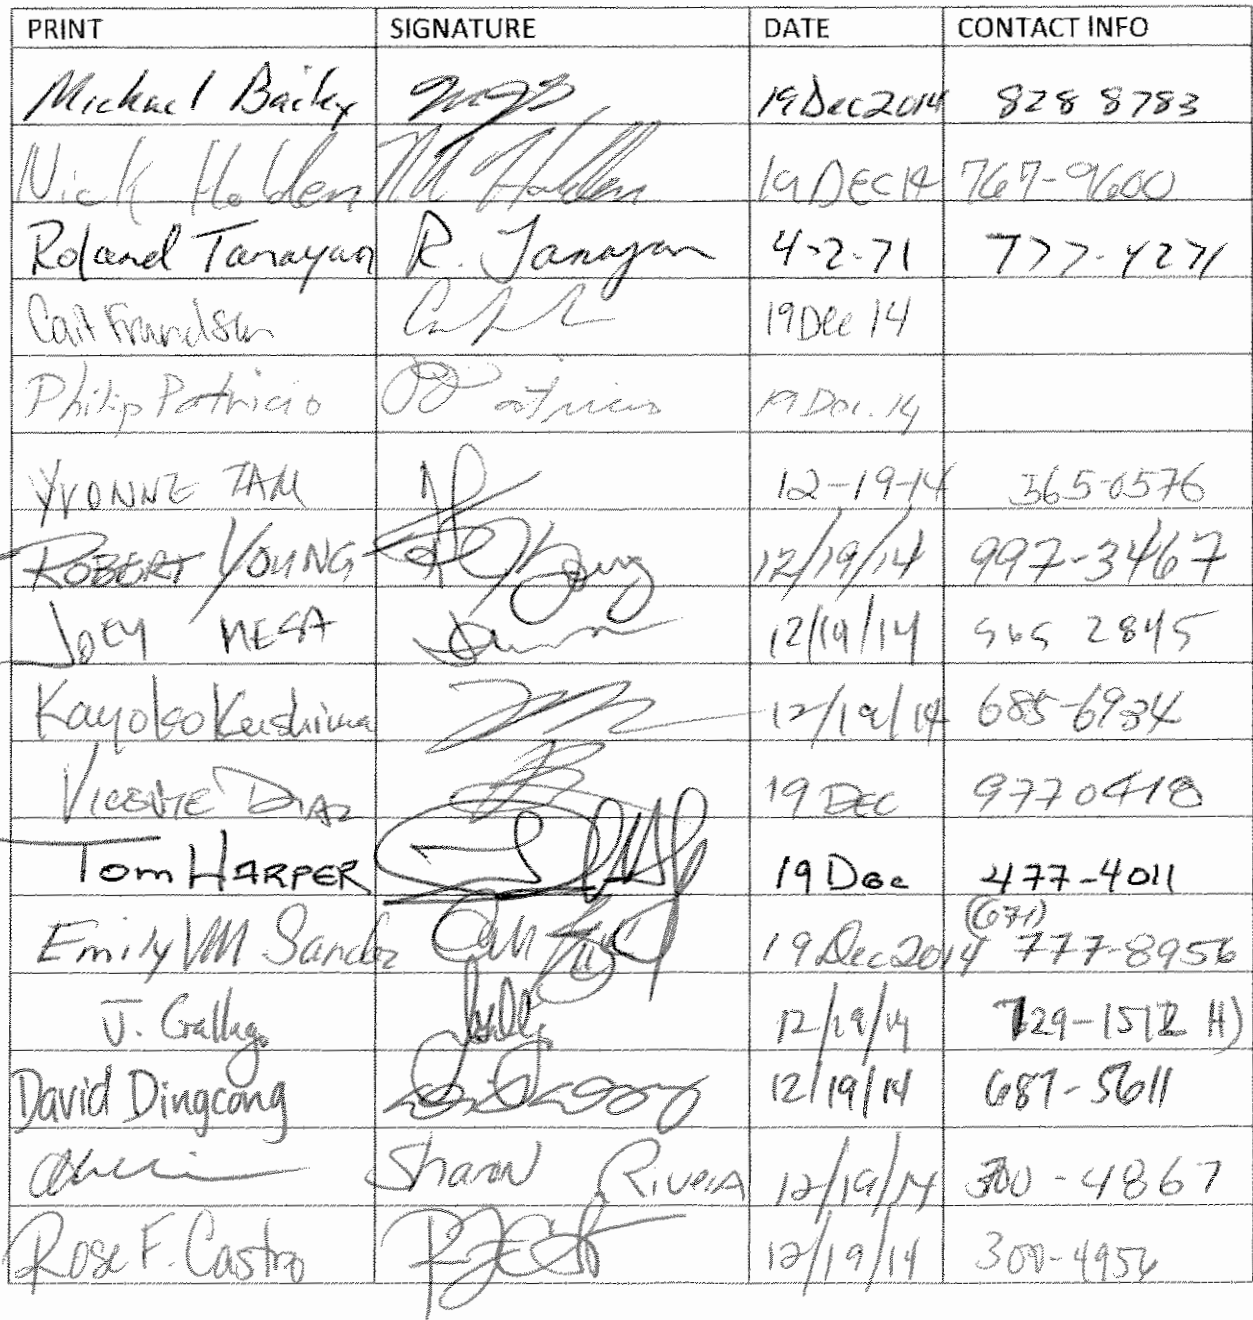 PRINT SIGNATURE DATE CONTACT INFO
Michael Bailey 19 Dec 2014 828 8783
Nick Holden N. Holden 19 DEC 14 767-9600
Roland Tanayan R. Tanayan 4-2-71 777-4271
Cait Frandsen 19 Dec 14
Philip Patricio Patricio 19 Dec. 14
YVONNE TAM 12-19-14 565-0576
ROBERT YOUNG Young 12/19/14 997-3467
JOEY MESA 12/19/14 565 2845
Kayoko Keishima 12/19/14 685-6934
VICENTE DIAZ 19 DEC 9770418
Tom HARPER 19 Dec 477-4011
Emily VM Sandoz 19 Dec 2014 (671) 777-8956
J. Gallego 12/19/14 729-1512 H)
David Dingcong 12/19/14 687-5611
Sharon RIVERA 12/19/14 300-4867
Rose F. Castro 12/19/14 300-4956